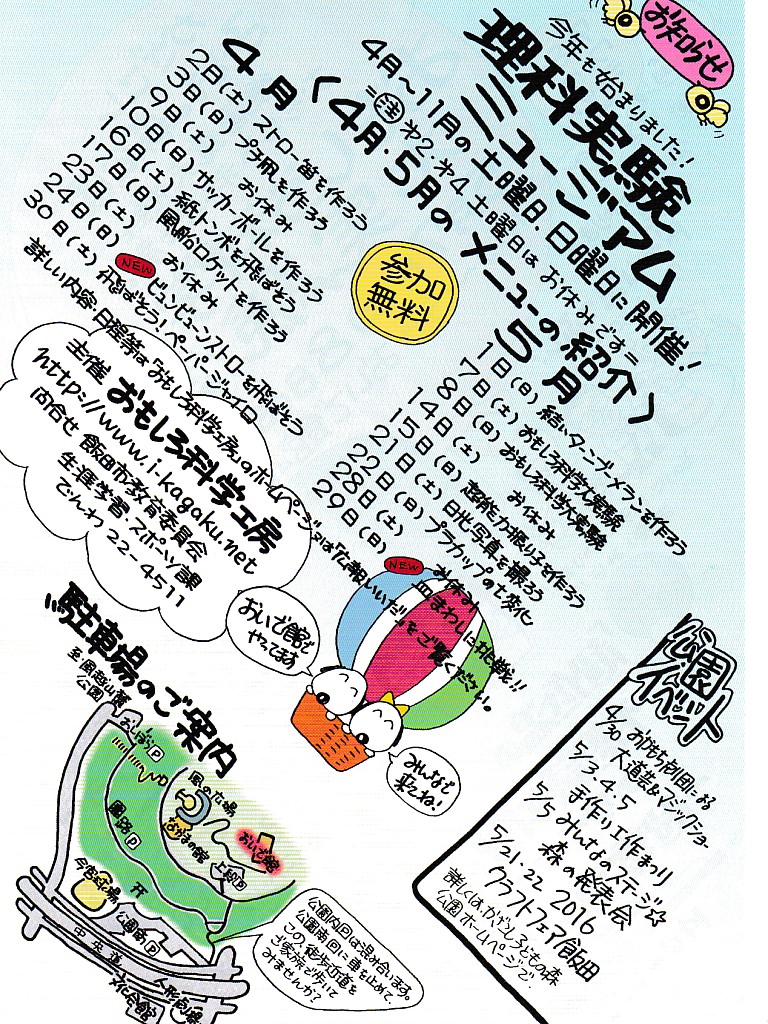 お知らせ
今年も始まりました！
理科実験
ミュージアム
4月～11月の土曜日、日曜日に開催！
＝㊟第2・第4土曜日はお休みです＝
〈4月・5月のメニューの紹介〉
参加
無料
4月
2日（土）ストロー笛を作ろう
3日（日）プラ凧を作ろう
9日（土）お休み
10日（日）サッカーボールを作ろう
16日（土）紙トンボを飛ばそう
17日（日）風船ロケットを作ろう
23日（土）お休み
24日（日）NEW ビュンビューンストローを飛ばそう
30日（土）飛ばそう！ペーパージャイロ
5月
1日（日）結いターンブーメランを作ろう
7日（土）おもしろ科学大実験
8日（日）おもしろ科学大実験
14日（土）お休み
15日（日）超能力振り子を作ろう
21日（土）日光写真を撮ろう
22日（日）プラカップの七変化
28日（土）お休み
29日（日）NEW 皿まわしに挑戦！！
詳しい内容・日程等は「おもしろ科学工房」のホームページ又は“広報いいだ”をご覧ください。
主催 おもしろ科学工房
http://www.i-kagaku.net
問合せ 飯田市教育委員会
生涯学習・スポーツ課
でんわ 22-4511
おいで館で
やってます
みんなで
来てね！
駐車場のご案内
至風越山麓
公園
おいで館
風の広場
上段P
園路P
今宮球場
公園南P
中央道
人形劇場
文化会館
公園内回は混み合います。
公園南回に車を止めて、
この、徒歩切道を
ご家族で歩いて
みませんか？
公園
イベント
4/30 おかもち劇団による
大道芸&マジックショー
5/3.4.5
手作り工作まつり
5/5 みんなのステージ☆
森の発表会
5/21.22 2016
クラフトフェア飯田
詳しくは、かざこしこどもの森
公園ホームページで。